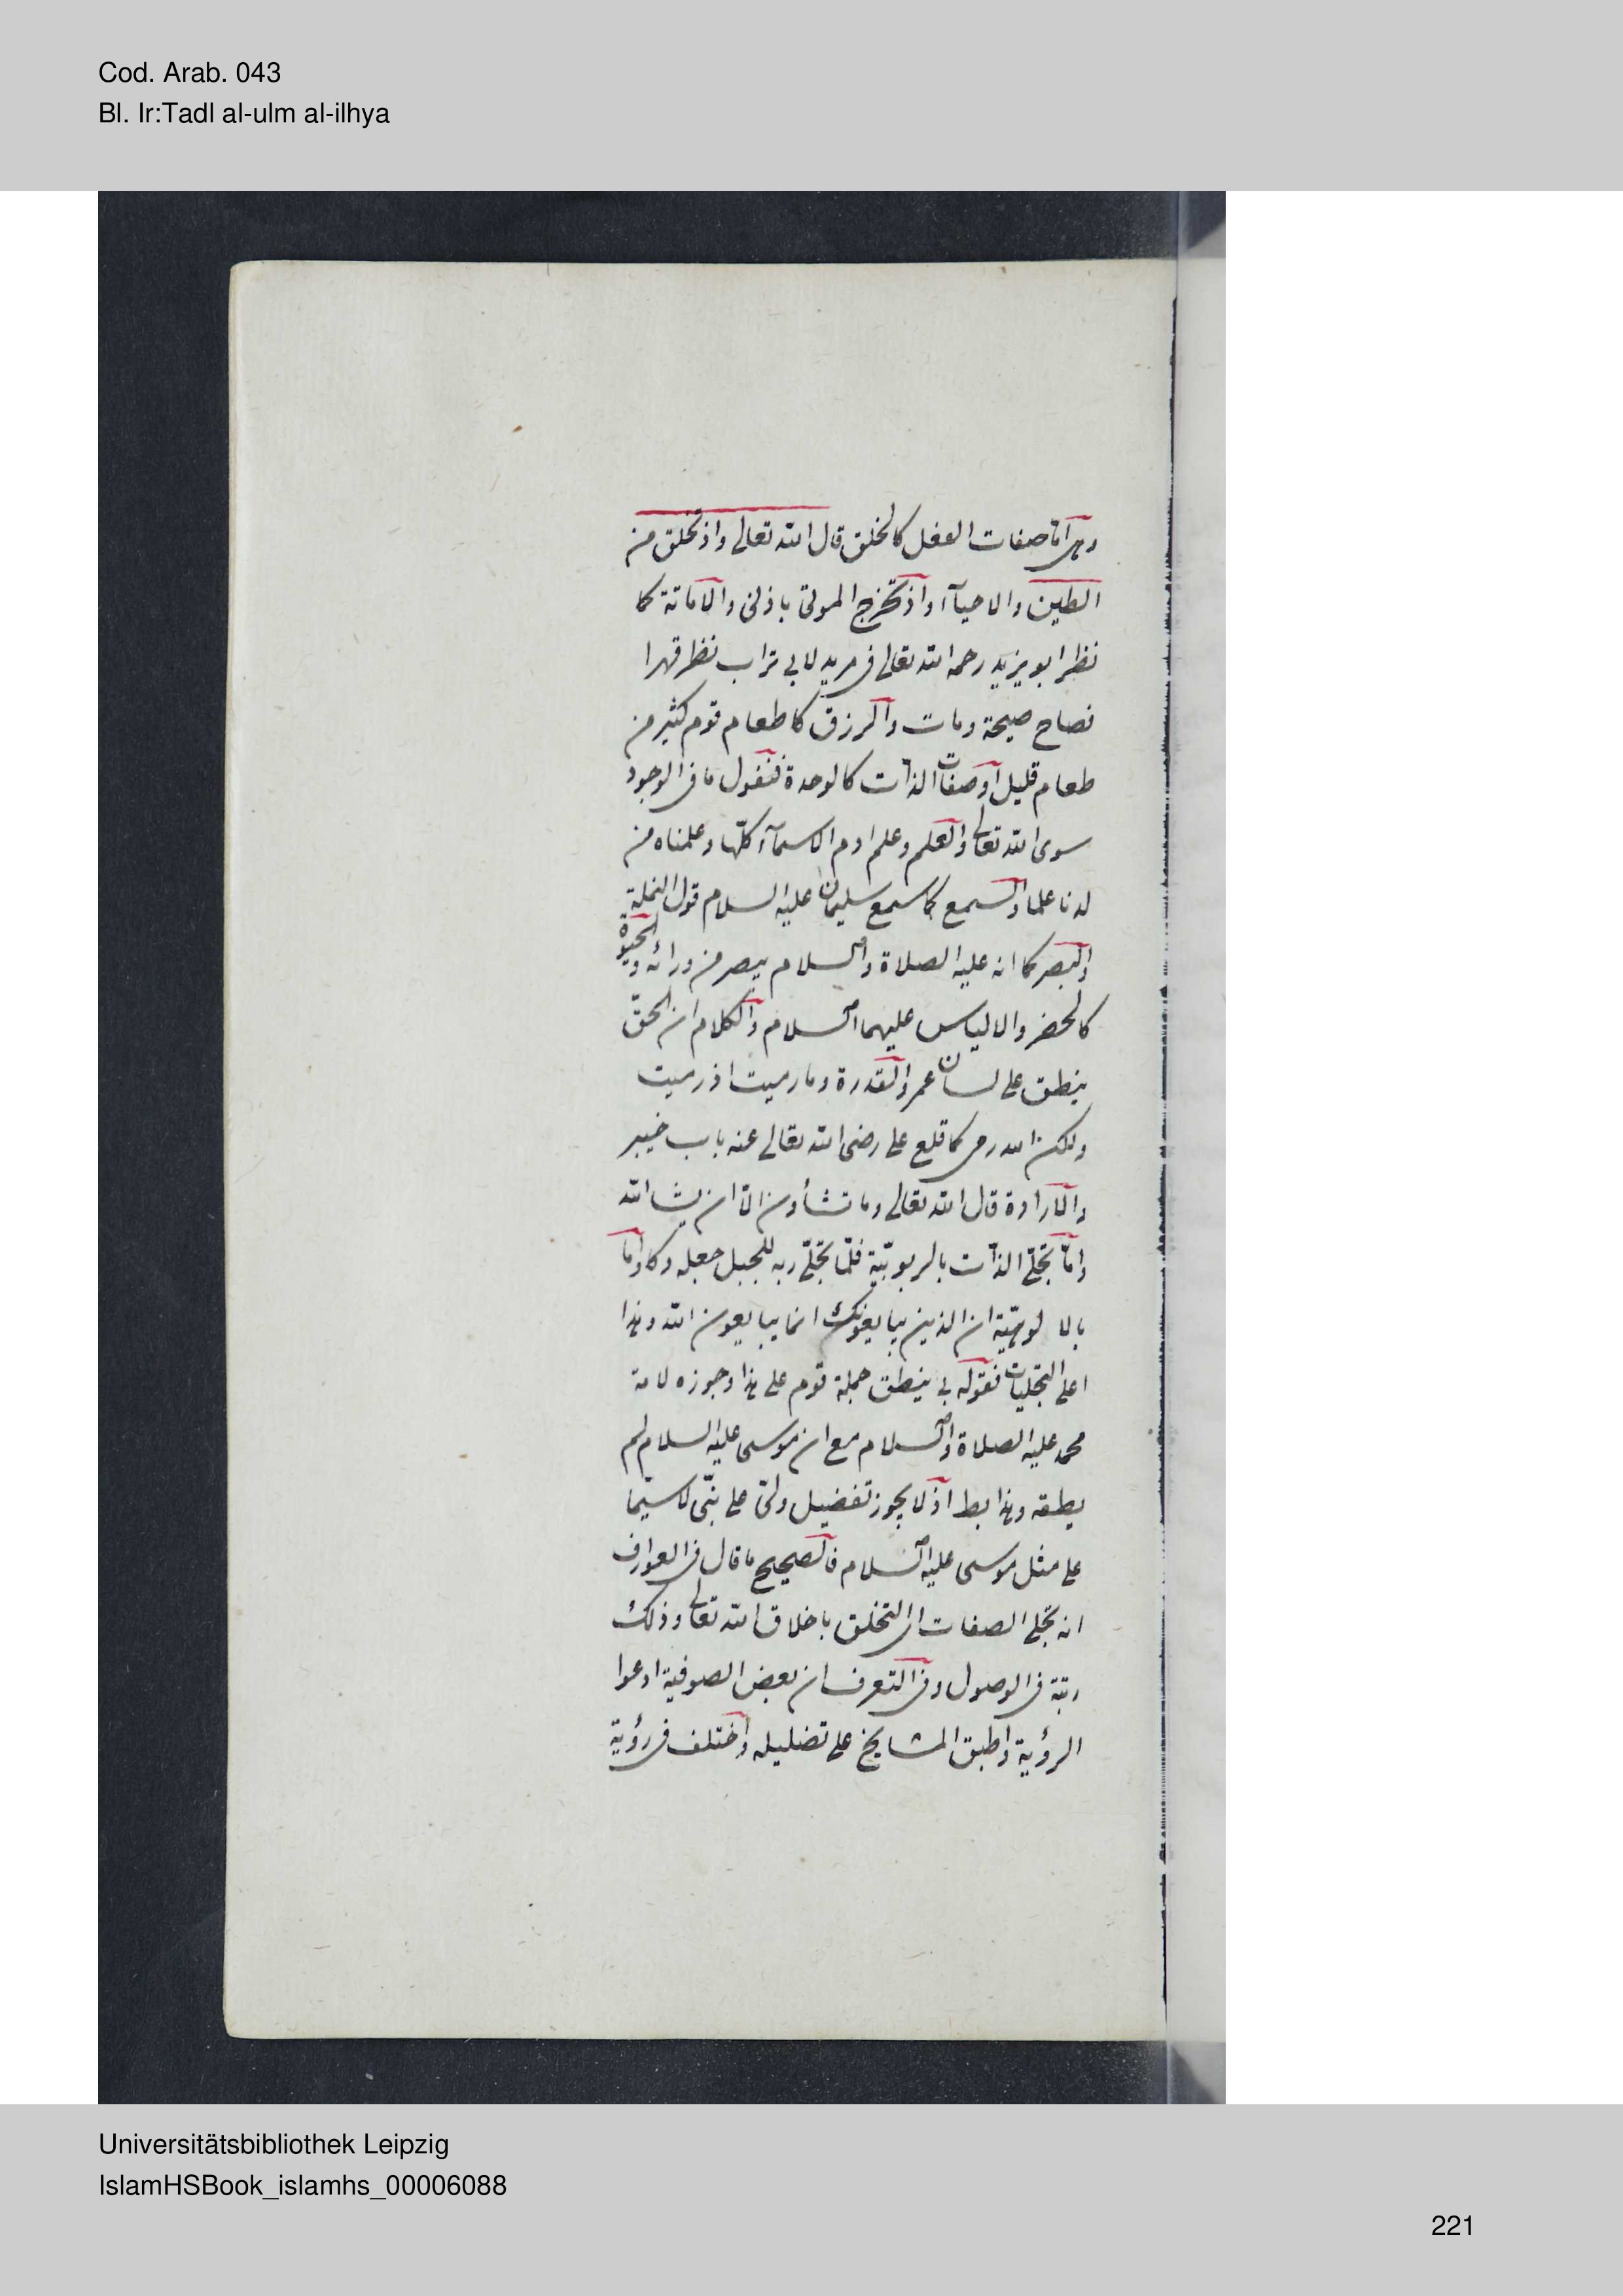 Cod. Arab. 043
Bl. Ir:Tadl al-ulm al-ilhya
وهى اما صفات الفعل كالخلق قال الله تعالى واذ تخلق من
الطين والاحيآء واذ تخرج الموتى باذنى والاماتة كما
نظر ابو يزيد رحمه الله تعالى فى مريد لابى تراب نظر قهرا
فصاح صيحة ومات والرزق كاطعام قوم كثير من
طعام قليل او صفات الذات كالوحدة فنقول ما فى الوجود
سوى الله تعالى والعلم وعلم ادم الاسمآء كلّها وعلمناه من
لدنا علما والسمع كما سمع سليمان عليه السلام قول النملة
والبصر كما انه عليه الصلاة والسلام يبصر من ورائه والحيوة
كالخضر والالياس عليهما السلام والكلام ان الحقّ
ينطق على لسان عمر والقدرة وما رميت اذ رميت
ولكن الله رمى كما قلع على رضى الله تعالى عنه باب خيبر
والارادة قال الله تعالى وما تشأون الّا ان يشا الله
وامّا تجلّى الذات بالربوبيّة فلمّا تجلّى ربه للجبل جعله دكا وامّا
بالالوهيّة ان الذين يبايعونك انما يبايعون الله وهذا
اعلى التجليات فقوله بى ينطق حملة قوم على هذا وجوزه لامة
محمد عليه الصلاة والسلام مع ان موسى عليه السلام لم
يطقه وهذا بط اذ لا يجوز تفضيل ولىّ على نبىّ لا سيّما
على مثل موسى عليه السلام فالصحيح ما قال فى العوارف
انه تجلى الصفات اى التخلق باخلاق الله تعالى وذلك
رتبة فى الوصول وفى التعرف ان بعض الصوفية ادعوا
الرؤية واطبق المشايخ على تضليله واختلف فى رؤية
Universitätsbibliothek Leipzig
IslamHSBook_islamhs_00006088
221